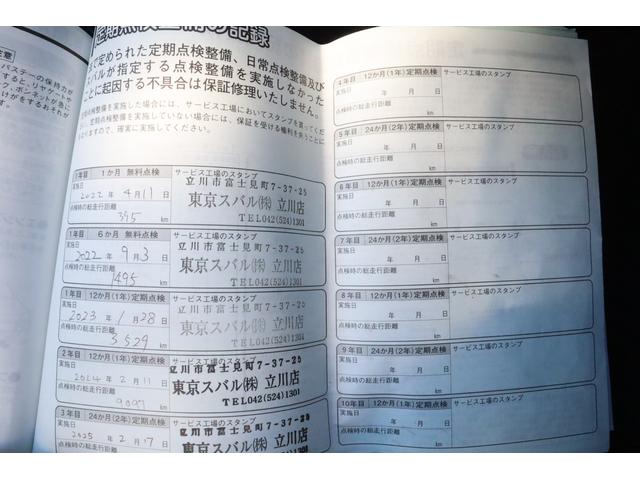 注意
定期点検整備の記録
で定められた定期点検整備、日常点検整備及び
スバルが指定する点検整備を実施しなかった
ことに起因する不具合は保証修理いたしません。
1か月 無料点検
サービス工場のスタンプ
実施日 2022年 4月11日
点検時の総走行距離
395 km
立川市富士見町7-37-25
東京スバル㈱ 立川店
TEL042(524)1301
1年目 6か月 無料点検
サービス工場のスタンプ
実施日 2022年 9月3日
点検時の総走行距離
1495 km
立川市富士見町7-37-25
東京スバル㈱ 立川店
TEL042(524)1301
1年目 12か月(1年)定期点検
サービス工場のスタンプ
実施日 2023年 1月28日
点検時の総走行距離
3529 km
立川市富士見町7-37-25
東京スバル㈱ 立川店
TEL042(524)1301
2年目 12か月(1年)定期点検
実施日 2024年 2月11日
点検時の総走行距離
9097 km
立川市富士見町7-37-25
東京スバル㈱ 立川店
TEL042(524)1301
3年目 24か月(2年)定期点検
実施日 2025年 2月17日
点検時の総走行距離
立川市富士見町7-37-25
東京スバル㈱ 立川店
4年目 12か月(1年)定期点検
サービス工場のスタンプ
実施日 年 月 日
点検時の総走行距離
km
5年目 24か月(2年)定期点検
サービス工場のスタンプ
実施日 年 月 日
点検時の総走行距離
km
6年目 12か月(1年)定期点検
サービス工場のスタンプ
実施日 年 月 日
点検時の総走行距離
km
7年目 24か月(2年)定期点検
サービス工場のスタンプ
実施日 年 月 日
点検時の総走行距離
km
8年目 12か月(1年)定期点検
サービス工場のスタンプ
実施日 年 月 日
点検時の総走行距離
km
9年目 24か月(2年)定期点検
サービス工場のスタンプ
実施日 年 月 日
点検時の総走行距離
km
10年目 12か月(1年)定期点検
サービス工場のスタンプ
実施日 年 月 日
点検時の総走行距離
km